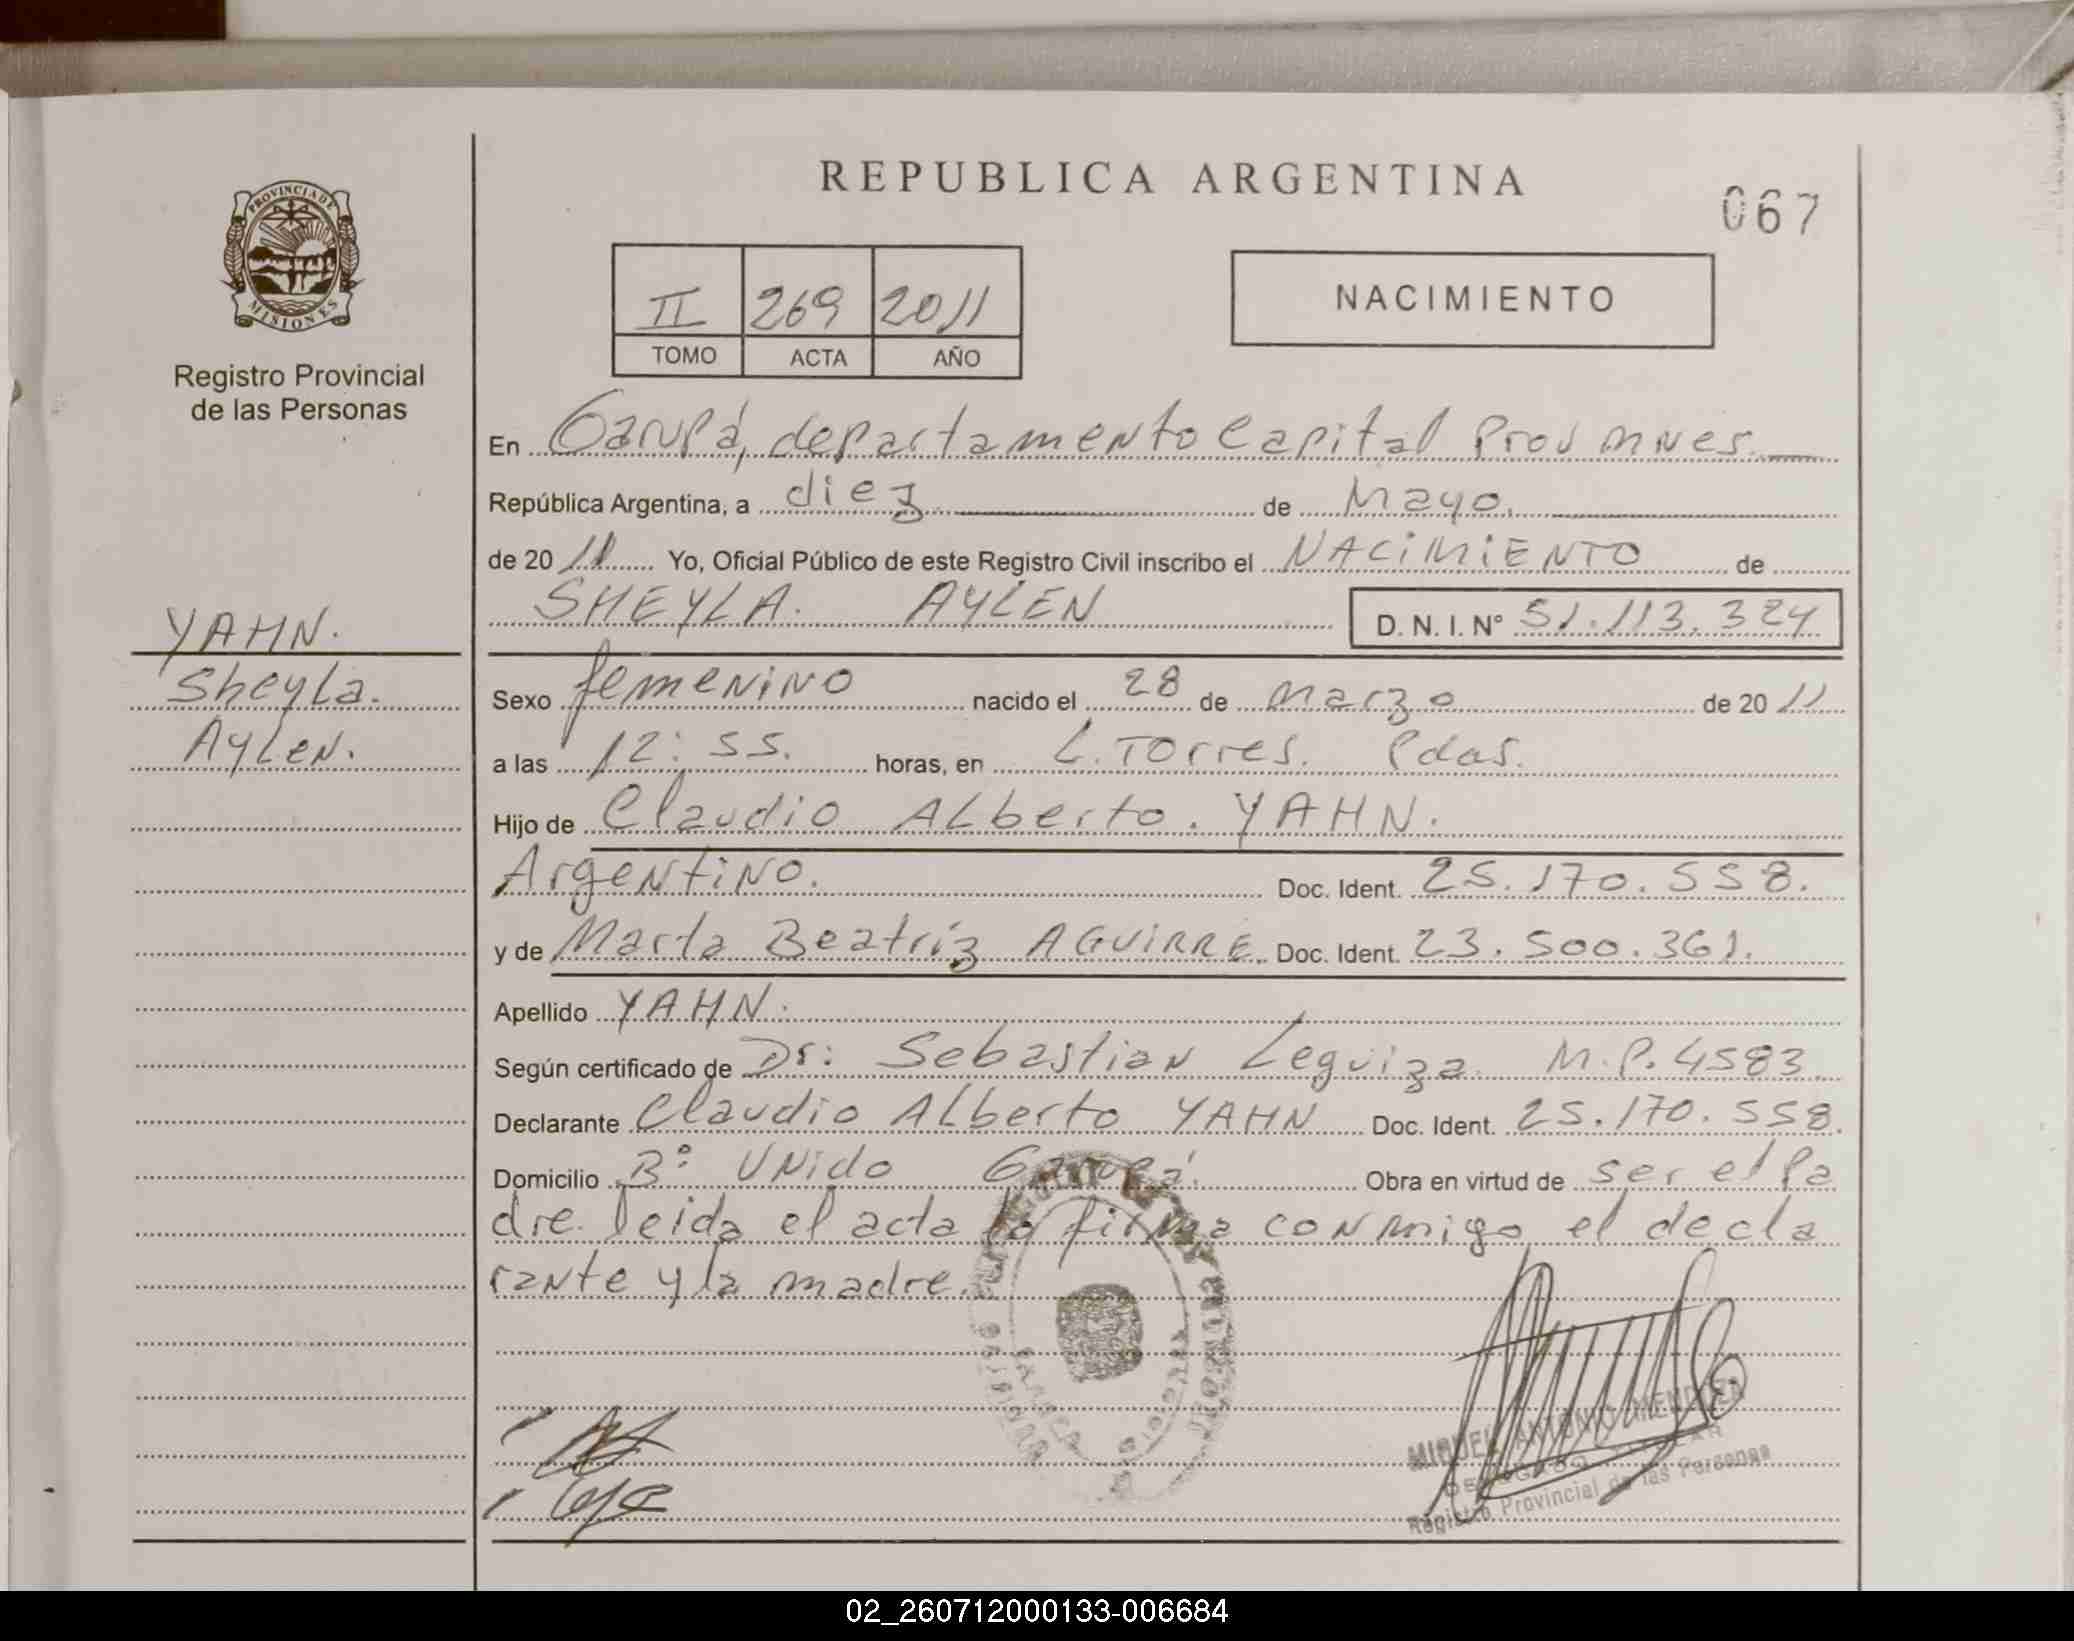 REPUBLICA ARGENTINA
067
PROVINCIA DE
MISIONES
Registro Provincial
de las Personas
II 269 2011
TOMO ACTA AÑO
NACIMIENTO
En Garupá, departamento Capital Prov Mnes.
República Argentina, a diez de Mayo.
de 2011 Yo, Oficial Público de este Registro Civil inscribo el NACIMIENTO de
SHEYLA. AYLEN D. N. I. N° 51.113.324
YAHN.
Sheyla.
Aylen.
Sexo femenino nacido el 28 de marzo de 2011
a las 12:55. horas, en L. Torres. Pdas.
Hijo de Claudio Alberto. YAHN.
Argentino. Doc. Ident. 25.170.558.
y de Marta Beatríz AGUIRRE. Doc. Ident. 23.500.361.
Apellido YAHN.
Según certificado de Dr: Sebastian Leguiza M.P. 4583.
Declarante Claudio Alberto YAHN Doc. Ident. 25.170.558.
Domicilio B° Unido Garupá. Obra en virtud de ser el Pa
dre. leida el acta la firma conmigo el decla
rante y la madre.
MIGUEL ANTONIO MENDOZA
DELEGADO TITULAR
Registro Provincial de las Personas
02_260712000133-006684